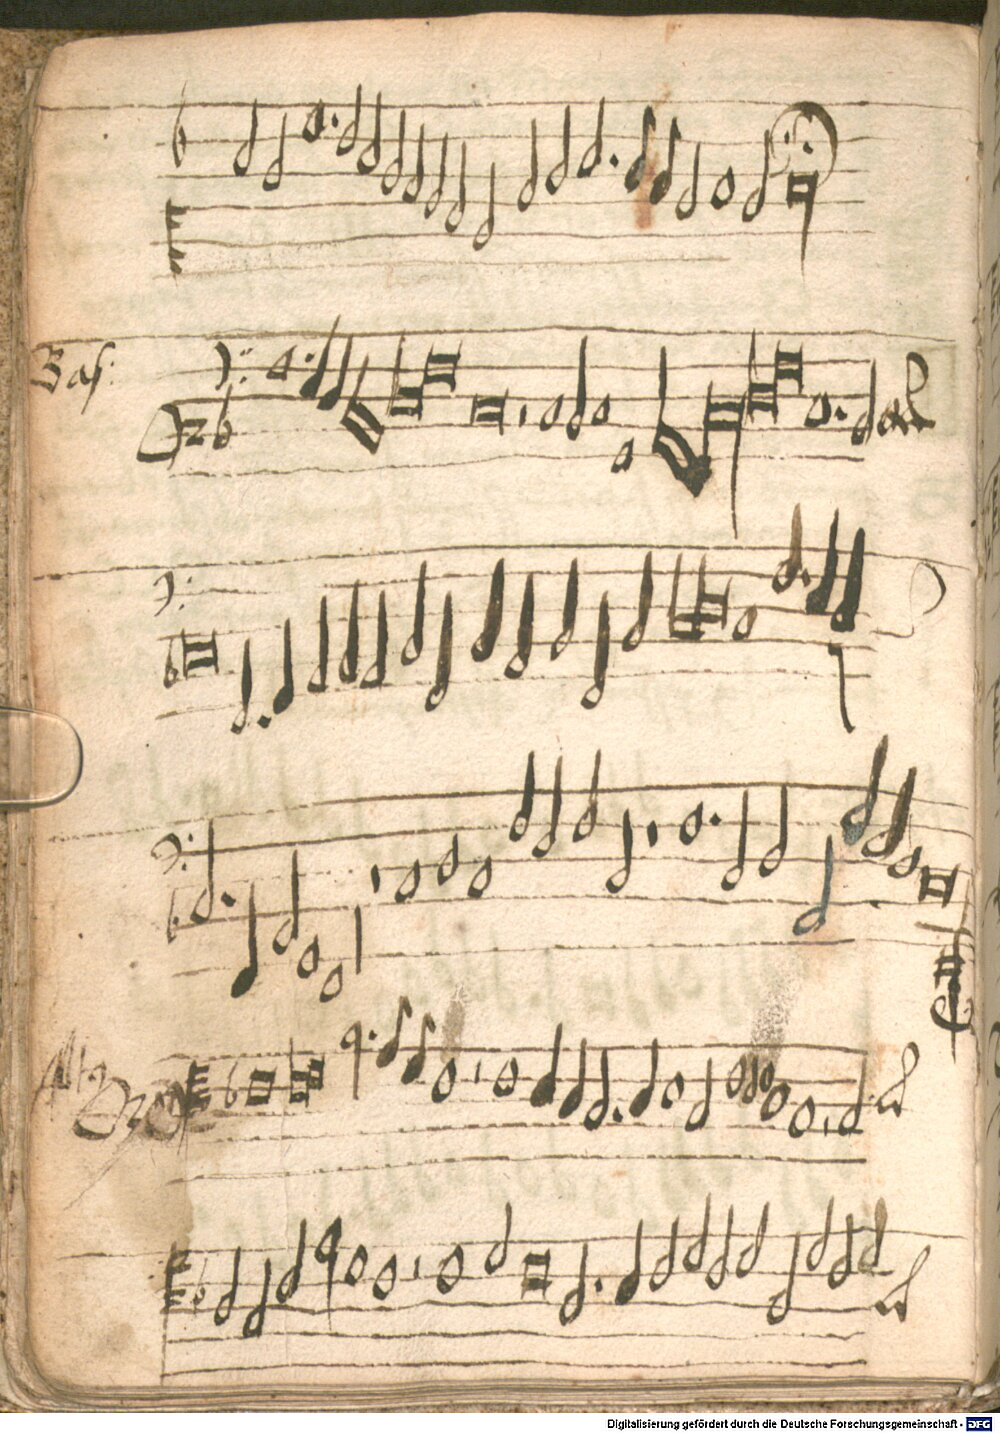 Bas:
Alt
Digitalisierung gefördert durch die Deutsche Forschungsgemeinschaft - DFG